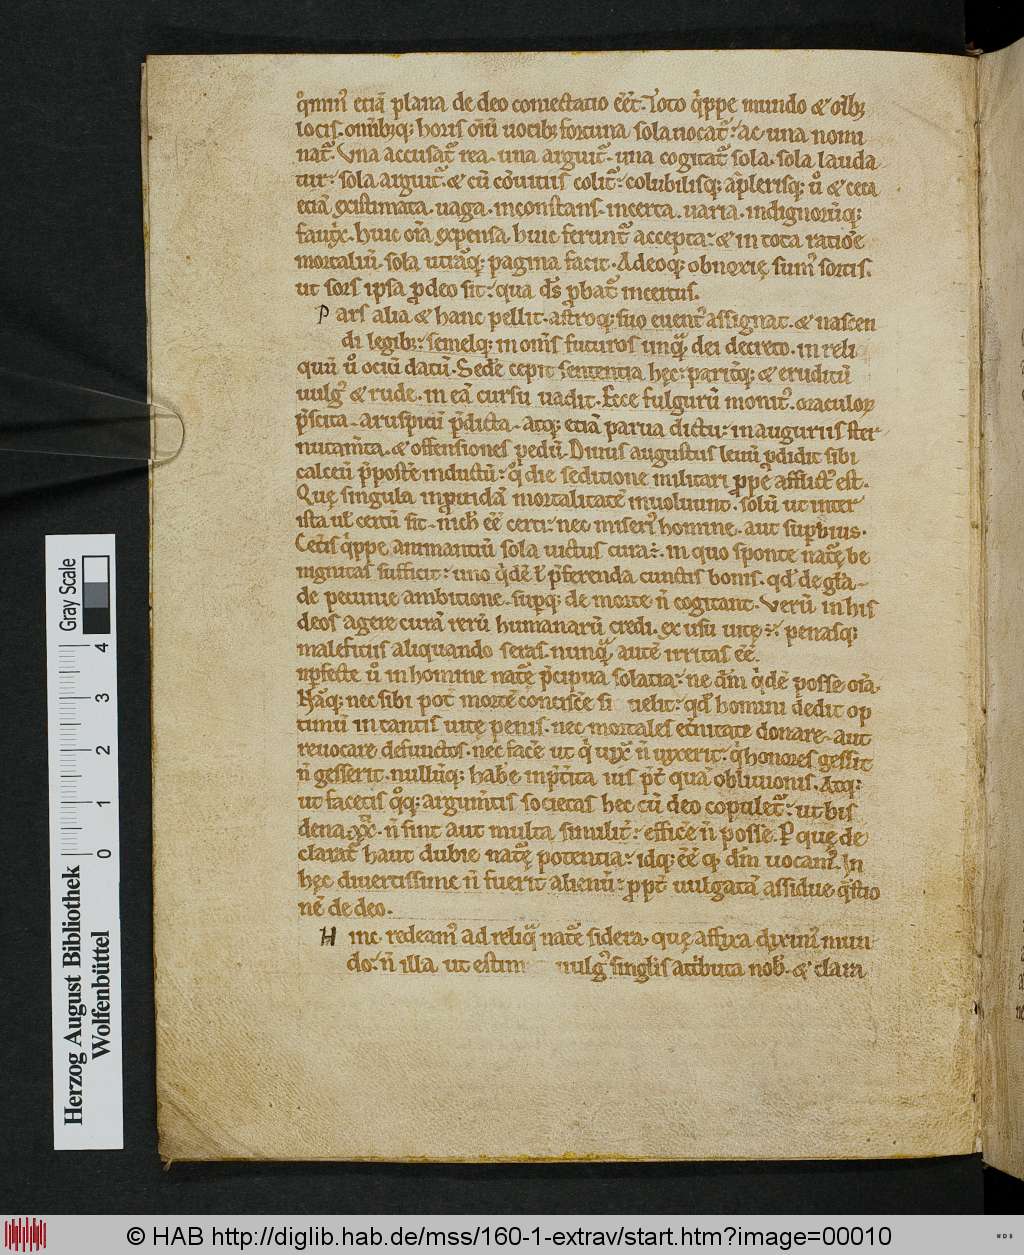 q̊minꝰ etiã plana de deo coniectatio eēt. Toto q̇ppe mundo & oĩbꝫ
locis. omĩbꝫqꝫ horis oĩũ uocibꝫ fortuna sola uocat᷑. ac una nomi
nat᷑. Vna accusat᷑ rea. una arguit᷑. una cogitat᷑ sola. sola lauda
tur. sola arguit᷑. & cũ cõuitiis colit᷑. uolubilisqꝫ. a plerisqꝫ ů & ceca
etiã existimata. uaga. inconstans. incerta. uaria. indignorũqꝫ
fautx̃. huic oĩa expensa. huic ferunt᷑ accepta. & in tota ratiõe
mortaliũ. sola utrãqꝫ pagina facit. Adeoqꝫ obnoxię sumꝰ sortis.
ut sors ipsa p̱ deo sit. qua ds̃ p̱bat᷑ incertus.
Pars alia & hanc pellit. astroqꝫ suo euentꝰ assignat. & nascen
di legibꝫ. semelqꝫ in om̃s futuros unq̃ dei decreto. in reli
quũ ů ociũ datũ. Sedẽ cepit sententia hęc. paritqꝫ & eruditũ
uulgꝰ & rude. in eã cursu uadit. Ecce fulgurũ monitꝰ. oraculoꝝ
p̃scita. aruspicũ p̃dicta. atqꝫ etiã parua dictu. in auguriis ster
nutam̃ta. & offensiones pedũ. Diuus augustus leuũ p̱didit sibi
calceũ p̃postẽ inductũ. q̊ die seditione militari ꝓpe afflictꝰ est.
Quę singula inp̱uidã mortalitatẽ inuoluunt. solũ ut inter
ista uł certũ sit. nichł eẽ certi. nec miseriꝰ homine. aut supbius.
Cet̃is q̇ppe animantiũ sola uictus cura ÷. in quo sponte nat᷑ę be
nignitas sufficit. uno q̇dẽ ł p̃ferenda cunctis bonis. qđ de gła
de pecunie ambitione. suꝑqꝫ de morte ñ cogitant. Verũ in his
deos agere curã rerũ humanarũ credi. ex usu uitę ÷. penasqꝫ
maleficiis aliquando seras. nunq̃ autẽ irritas eẽ.
Inꝑfecte ů in homine nat᷑ę p̃cipua solatia. ne dm̃ q̇dẽ posse oĩa.
Nãqꝫ nec sibi pot̃ mortẽ consciscẽ si uelit. qđ homini dedit op
timũ in tantis uitę penis. nec mortales et̃nitate donare. aut
reuocare defunctos. nec facẽ ut q̇ uix̃ ñ uixerit. q̇ honores gessit
ñ gesserit. nullũqꝫ habẽ inp̃t̃ita ius p̃t̃ quã obliuionis. Atqꝫ
ut facetis q̊qꝫ argum̃tis societas hec cũ deo copulet᷑. ut bis
dena xx̃. ñ sint aut multa similit̃. efficẽ ñ posse. Ꝑ quę de
clarat᷑ haut dubie nat᷑ę potentia. idqꝫ eẽ qđ dm̃ uocamꝰ. In
hęc diuertissime ñ fuerit alienũ. ꝓpt̃ uulgatã assidue q̃stio
nẽ de deo.
Hinc redeamꝰ ad reliq̃ nat᷑ę sidera. quę affixa diximꝰ mun
do. ñ illa. ut estim uulgꝰ singłis att̃buta nob̃. & clara
Gray Scale
4
3
2
1
0
Herzog August Bibliothek
Wolfenbüttel
© HAB http://diglib.hab.de/mss/160-1-extrav/start.htm?image=00010